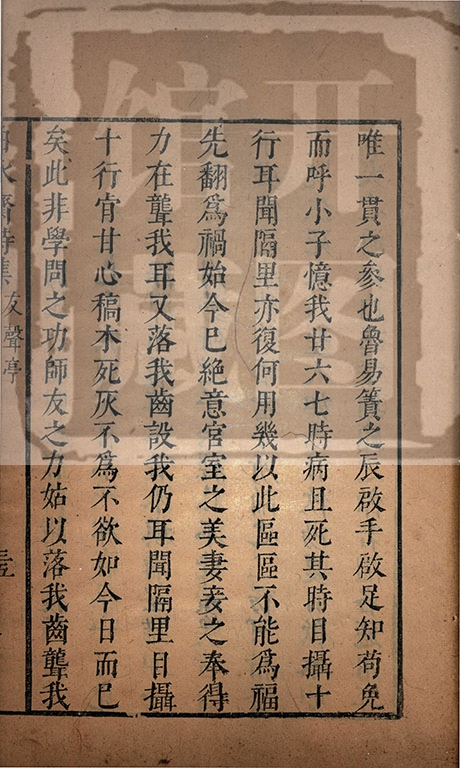 唯一貫之參也魯易簀之辰啟手啟足知苟免
而呼小子憶我廿六七時病且死其時目攝十
行耳聞隔里亦復何用幾以此區區不能為福
先翻為禍始今巳絕意宮室之美妻妾之奉得
力在聾我耳又落我齒設我仍耳聞隔里目攝
十行肎甘心稿木死灰不為不欲如今日而巳
矣此非學問之功師友之力姑以落我齒聾我
友聲亭